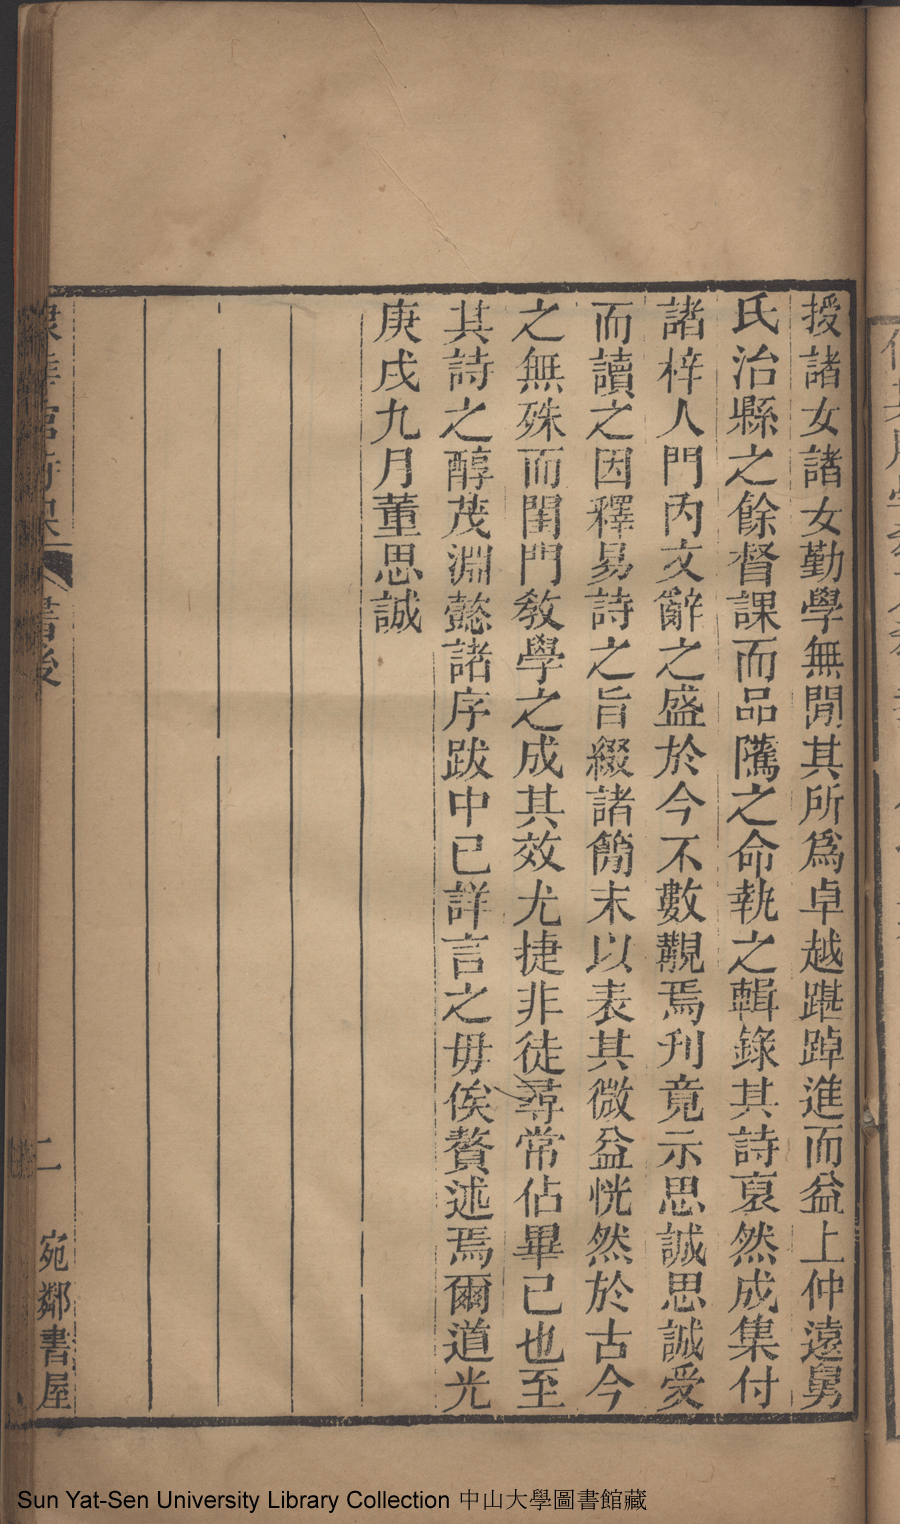 授諸女諸女勤學無閒其所爲卓越踸踔進而益上仲遠舅
氏治縣之餘督課而品隲之命執之輯錄其詩裒然成集付
諸梓人門內文辭之盛於今不數覯焉刋竟示思誠思誠受
而讀之因釋易詩之旨綴諸簡末以表其微益恍然於古今
之無殊而閨門敎學之成其效尤捷非徒尋常佔畢已也至
其詩之醇茂淵懿諸序跋中已詳言之毋俟贅述焉爾道光
庚戌九月董思誠
書後
二
宛鄰書屋
Sun Yat-Sen University Library Collection 中山大學圖書館藏